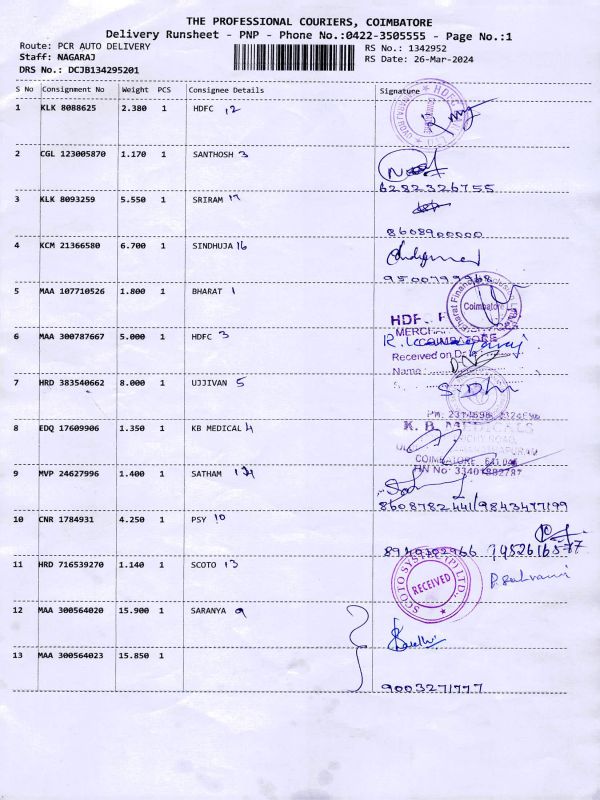 THE PROFESSIONAL COURIERS, COIMBATORE
Delivery Runsheet - PNP - Phone No.:0422-3505555 - Page No.:1
Route: PCR AUTO DELIVERY RS No.: 1342952
Staff: NAGARAJ RS Date: 26-Mar-2024
DRS No.: DCJB134295201
S No Consignment No Weight PCS Consignee Details Signature
1 KLK 8088625 2.380 1 HDFC 12
2 CGL 123005870 1.170 1 SANTHOSH 3
6282326755
3 KLK 8093259 5.550 1 SRIRAM 17
8608900000
4 KCM 21366580 6.700 1 SINDHUJA 16
9500799968
5 MAA 107710526 1.800 1 BHARAT 1
Coimbatore
6 MAA 300787667 5.000 1 HDFC 3
HDF
Received on
Name
7 HRD 383540662 8.000 1 UJJIVAN 5
8 EDQ 17609906 1.350 1 KB MEDICAL 4
K. B. MEDICALS
COIMBATORE
9 MVP 24627996 1.400 1 SATHAM 14
8608782441/9843477199
10 CNR 1784931 4.250 1 PSY 10
11 HRD 716539270 1.140 1 SCOTO 13
SCOTO SYSTEM (P) LTD.,
RECEIVED
12 MAA 300564020 15.900 1 SARANYA 9
13 MAA 300564023 15.850 1
9003271777